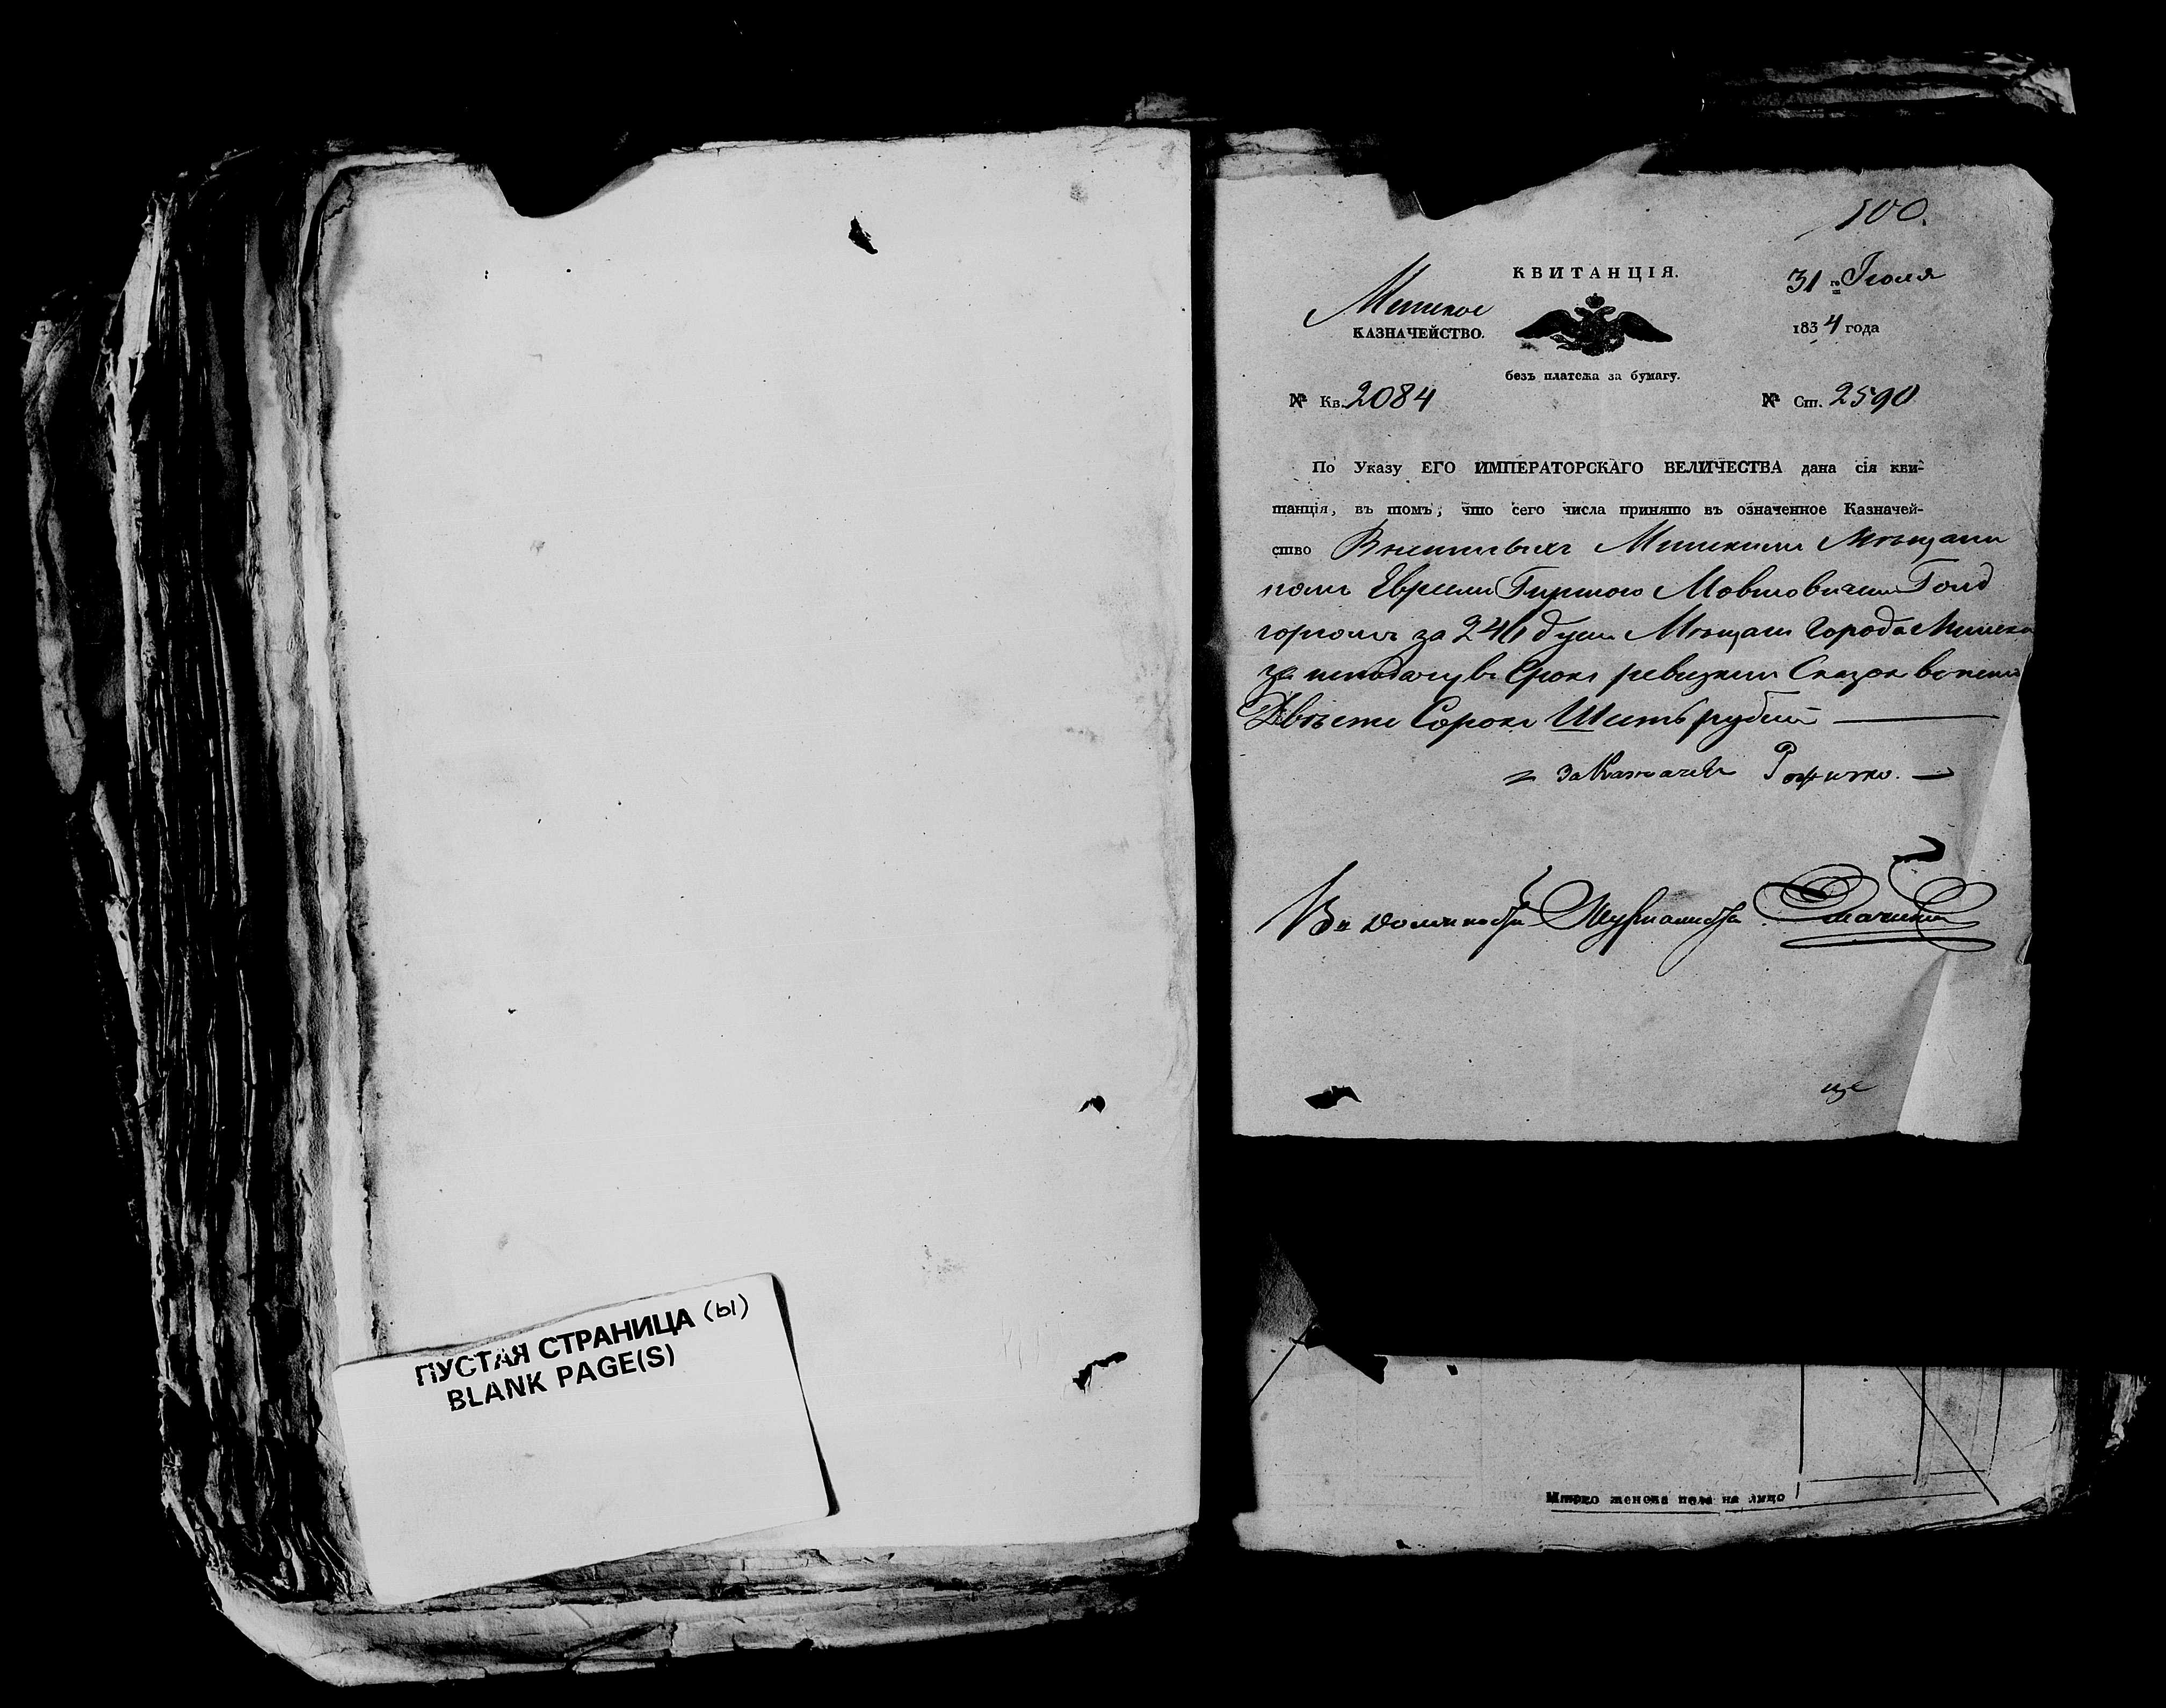 ПУСТАЯ СТРАНИЦА (ы)
BLANK PAGE(S)
100.
КВИТАНЦІЯ.
31 го Іюля
Минское
КАЗНАЧЕЙСТВО.
1834 года
безъ платежа за бумагу.
№ Кв. 2084
№ Ст. 2590
По Указу ЕГО ИМПЕРАТОРСКАГО ВЕЛИЧЕСТВА дана сія кви-
танція, въ томъ, что сего числа принято въ означенное Казначей-
ство Внесенныхъ Минскимъ Мѣщани
номъ Евреемъ Гиршою Мовшовичемъ Голд
горномъ за 246 душъ Мѣщанъ Города Минска
за неподачу въ Срокъ ревизкихъ Сказок въ пеню
Двѣсти Сорокъ Шесть рублей
За Казначея
Въ должности Журналиста
Итого женска пола на лицо